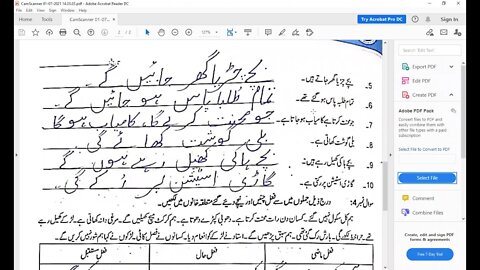 CamScanner 01-07-2021 14.20.33.pdf - Adobe Acrobat Reader DC
File Edit View Window Help
Home Tools
Sign In
Try Acrobat Pro DC
Search 'Edit Text'
Export PDF
Edit PDF
Create PDF
Adobe PDF Pack
Convert files to PDF and easily combine them with other file types with a paid subscription
Select File to Convert to PDF
Select File
Comment
Combine Files
Create, edit and sign PDF forms & agreements
Free 7-Day Trial
5۔ بچے چڑیا گھر جاتے ہیں۔
بچے چڑیا گھر جائیں گے۔
6۔ تمام طلبہ پاس ہو گئے تھے۔
تمام طلبا پاس ہو جائیں گے۔
7۔ جو محنت کرتا ہے کامیاب ہو جاتا ہے۔
جو محنت کرے گا، کامیاب ہو گا
8۔ بلی گوشت کھاتی ہے۔
بلی گوشت کھائے گی۔
9۔ بچے ہاکی کھیل رہے ہیں۔
بچے ہاکی کھیل رہے ہوں گے
10۔ گاڑی اسٹیشن پر رکتی ہے۔
گاڑی اسٹیشن پر رکے گی۔
سوال نمبر 4: درج ذیل جملوں میں سے فعل چنیں اور نیچے دیے گئے متعلقہ خانوں میں لکھیں۔
ہم کل سکول نہیں گئے۔ کسان دن رات محنت کرتا ہے۔ دھوبی کپڑے دھوتا ہے۔ ہم کرکٹ میچ کھیلیں گے۔ مرغی دانہ کھاتی ہے۔ لڑکے کھیل رہے
تھے۔ بارش رک گئی تھی۔ ہم سبق پڑھیں گے۔ استاد نے لڑکے کو انعام دیا۔ کسانوں نے فصل کاٹی۔ لڑکوں نے کہا ہم شور نہیں کریں گے۔
فعل ماضی فعل حال فعل مستقبل